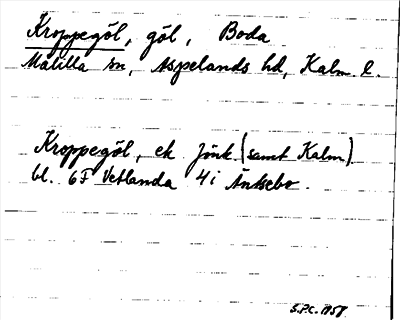 Kroppegöl, göl, Boda
Målilla sn, Aspelands hd, Kalm. l.
Kroppegöl, ek Jönk. (samt Kalm)
bl. 6F Vetlanda 4i Änkebo.
S.P.C. 1958